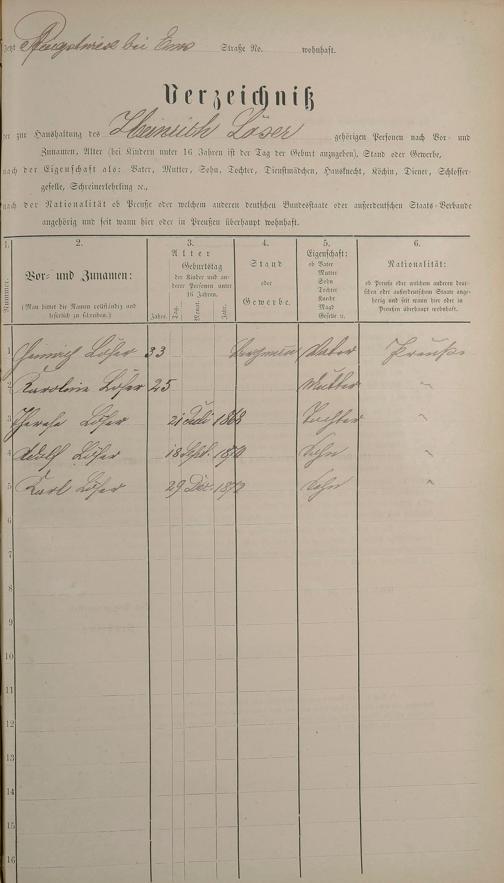 Jetzt bei Ems Straße No. wohnhaft.
Verzeichniß
der zur Haushaltung des Heinrich Löser gehörigen Personen nach Vor- und
Zunamen, Alter (bei Kindern unter 16 Jahren ist der Tag der Geburt anzugeben), Stand oder Gewerbe,
nach der Eigenschaft als: Vater, Mutter, Sohn, Tochter, Dienstmädchen, Hausknecht, Köchin, Diener, Schlosser-
geselle, Schreinerlehrling ꝛc.,
nach der Nationalität ob Preuße oder welchem anderen deutschen Bundesstaate oder außerdeutschen Staats-Verbande
angehörig und seit wann hier oder in Preußen überhaupt wohnhaft.
1. Nummer.
2. Vor- und Zunamen:
(Man bittet die Namen vollständig und
leserlich zu schreiben.)
3. Alter
Geburtstag
der Kinder und an-
derer Personen unter
16 Jahren.
Jahre. Tag. Monat. Jahr.
4. Stand
oder
Gewerbe.
5. Eigenschaft:
ob Vater
Mutter
Sohn
Tochter
Knecht
Magd
Geselle u.
6. Nationalität:
ob Preuße oder welchem anderen deut-
schen oder außerdeutschen Staat ange-
hörig und seit wann hier oder in
Preußen überhaupt wohnhaft.
1 Heinrich Löser 33 Bergmann Vater Preuße
2 Karoline Löser 25 Mutter "
3 Therese Löser 21 Juli 1868 Tochter "
4 Adolf Löser 18 Sept. 1870 Sohn "
5 Karl Löser 29 Dez. 1872 Sohn "
6
7
8
9
10
11
12
13
14
15
16